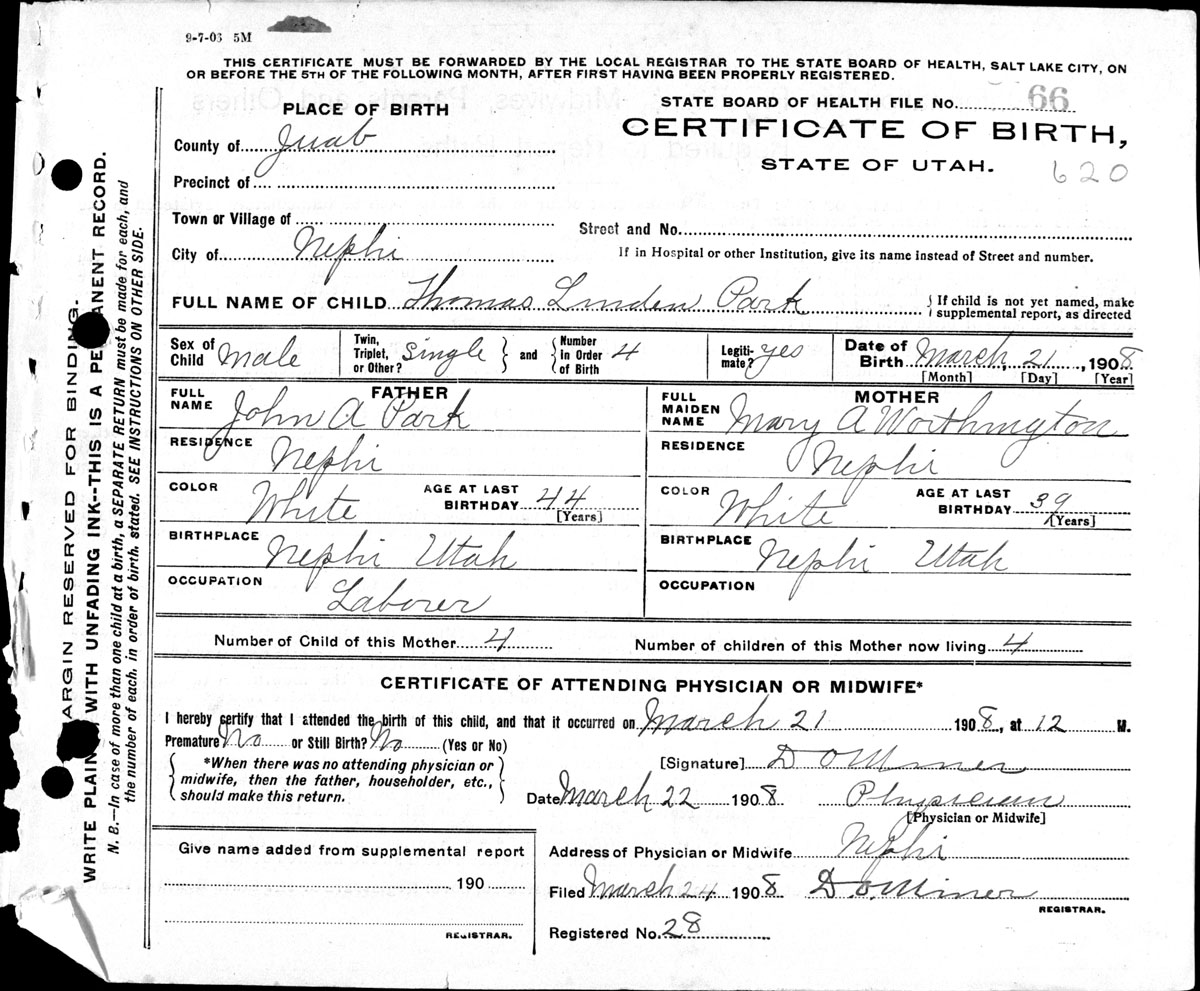 9-7-03 5M
THIS CERTIFICATE MUST BE FORWARDED BY THE LOCAL REGISTRAR TO THE STATE BOARD OF HEALTH, SALT LAKE CITY, ON
OR BEFORE THE 5TH OF THE FOLLOWING MONTH, AFTER FIRST HAVING BEEN PROPERLY REGISTERED.
PLACE OF BIRTH
County of Juab
Precinct of
Town or Village of
City of Nephi
STATE BOARD OF HEALTH FILE No. 66
CERTIFICATE OF BIRTH,
STATE OF UTAH.
620
Street and No.
If in Hospital or other Institution, give its name instead of Street and number.
FULL NAME OF CHILD Thomas Linden Park
If child is not yet named, make
supplemental report, as directed
Sex of Child Male
Twin, Triplet, or Other? Single and Number in Order of Birth 4
Legiti- mate? yes
Date of Birth March, 21, 1908
[Month] [Day] [Year]
FATHER
FULL NAME John A Park
RESIDENCE Nephi
COLOR White AGE AT LAST BIRTHDAY 44
[Years]
BIRTHPLACE Nephi Utah
OCCUPATION Laborer
MOTHER
FULL MAIDEN NAME Mary A Worthington
RESIDENCE Nephi
COLOR White AGE AT LAST BIRTHDAY 39
[Years]
BIRTHPLACE Nephi Utah
OCCUPATION
Number of Child of this Mother 4 Number of children of this Mother now living 4
CERTIFICATE OF ATTENDING PHYSICIAN OR MIDWIFE*
I hereby certify that I attended the birth of this child, and that it occurred on March 21 1908, at 12 M.
Premature No or Still Birth? No (Yes or No)
*When there was no attending physician or
midwife, then the father, householder, etc.,
should make this return.
[Signature] D O Miner
Date March 22 1908 Physician
[Physician or Midwife]
Give name added from supplemental report
190
REGISTRAR.
Address of Physician or Midwife Nephi
Filed March 24 1908 D.O. Miner
REGISTRAR.
Registered No. 28
MARGIN RESERVED FOR BINDING.
WRITE PLAINLY WITH UNFADING INK--THIS IS A PERMANENT RECORD.
N. B.—In case of more than one child at a birth, a SEPARATE RETURN must be made for each, and
the number of each, in order of birth, stated. SEE INSTRUCTIONS ON OTHER SIDE.